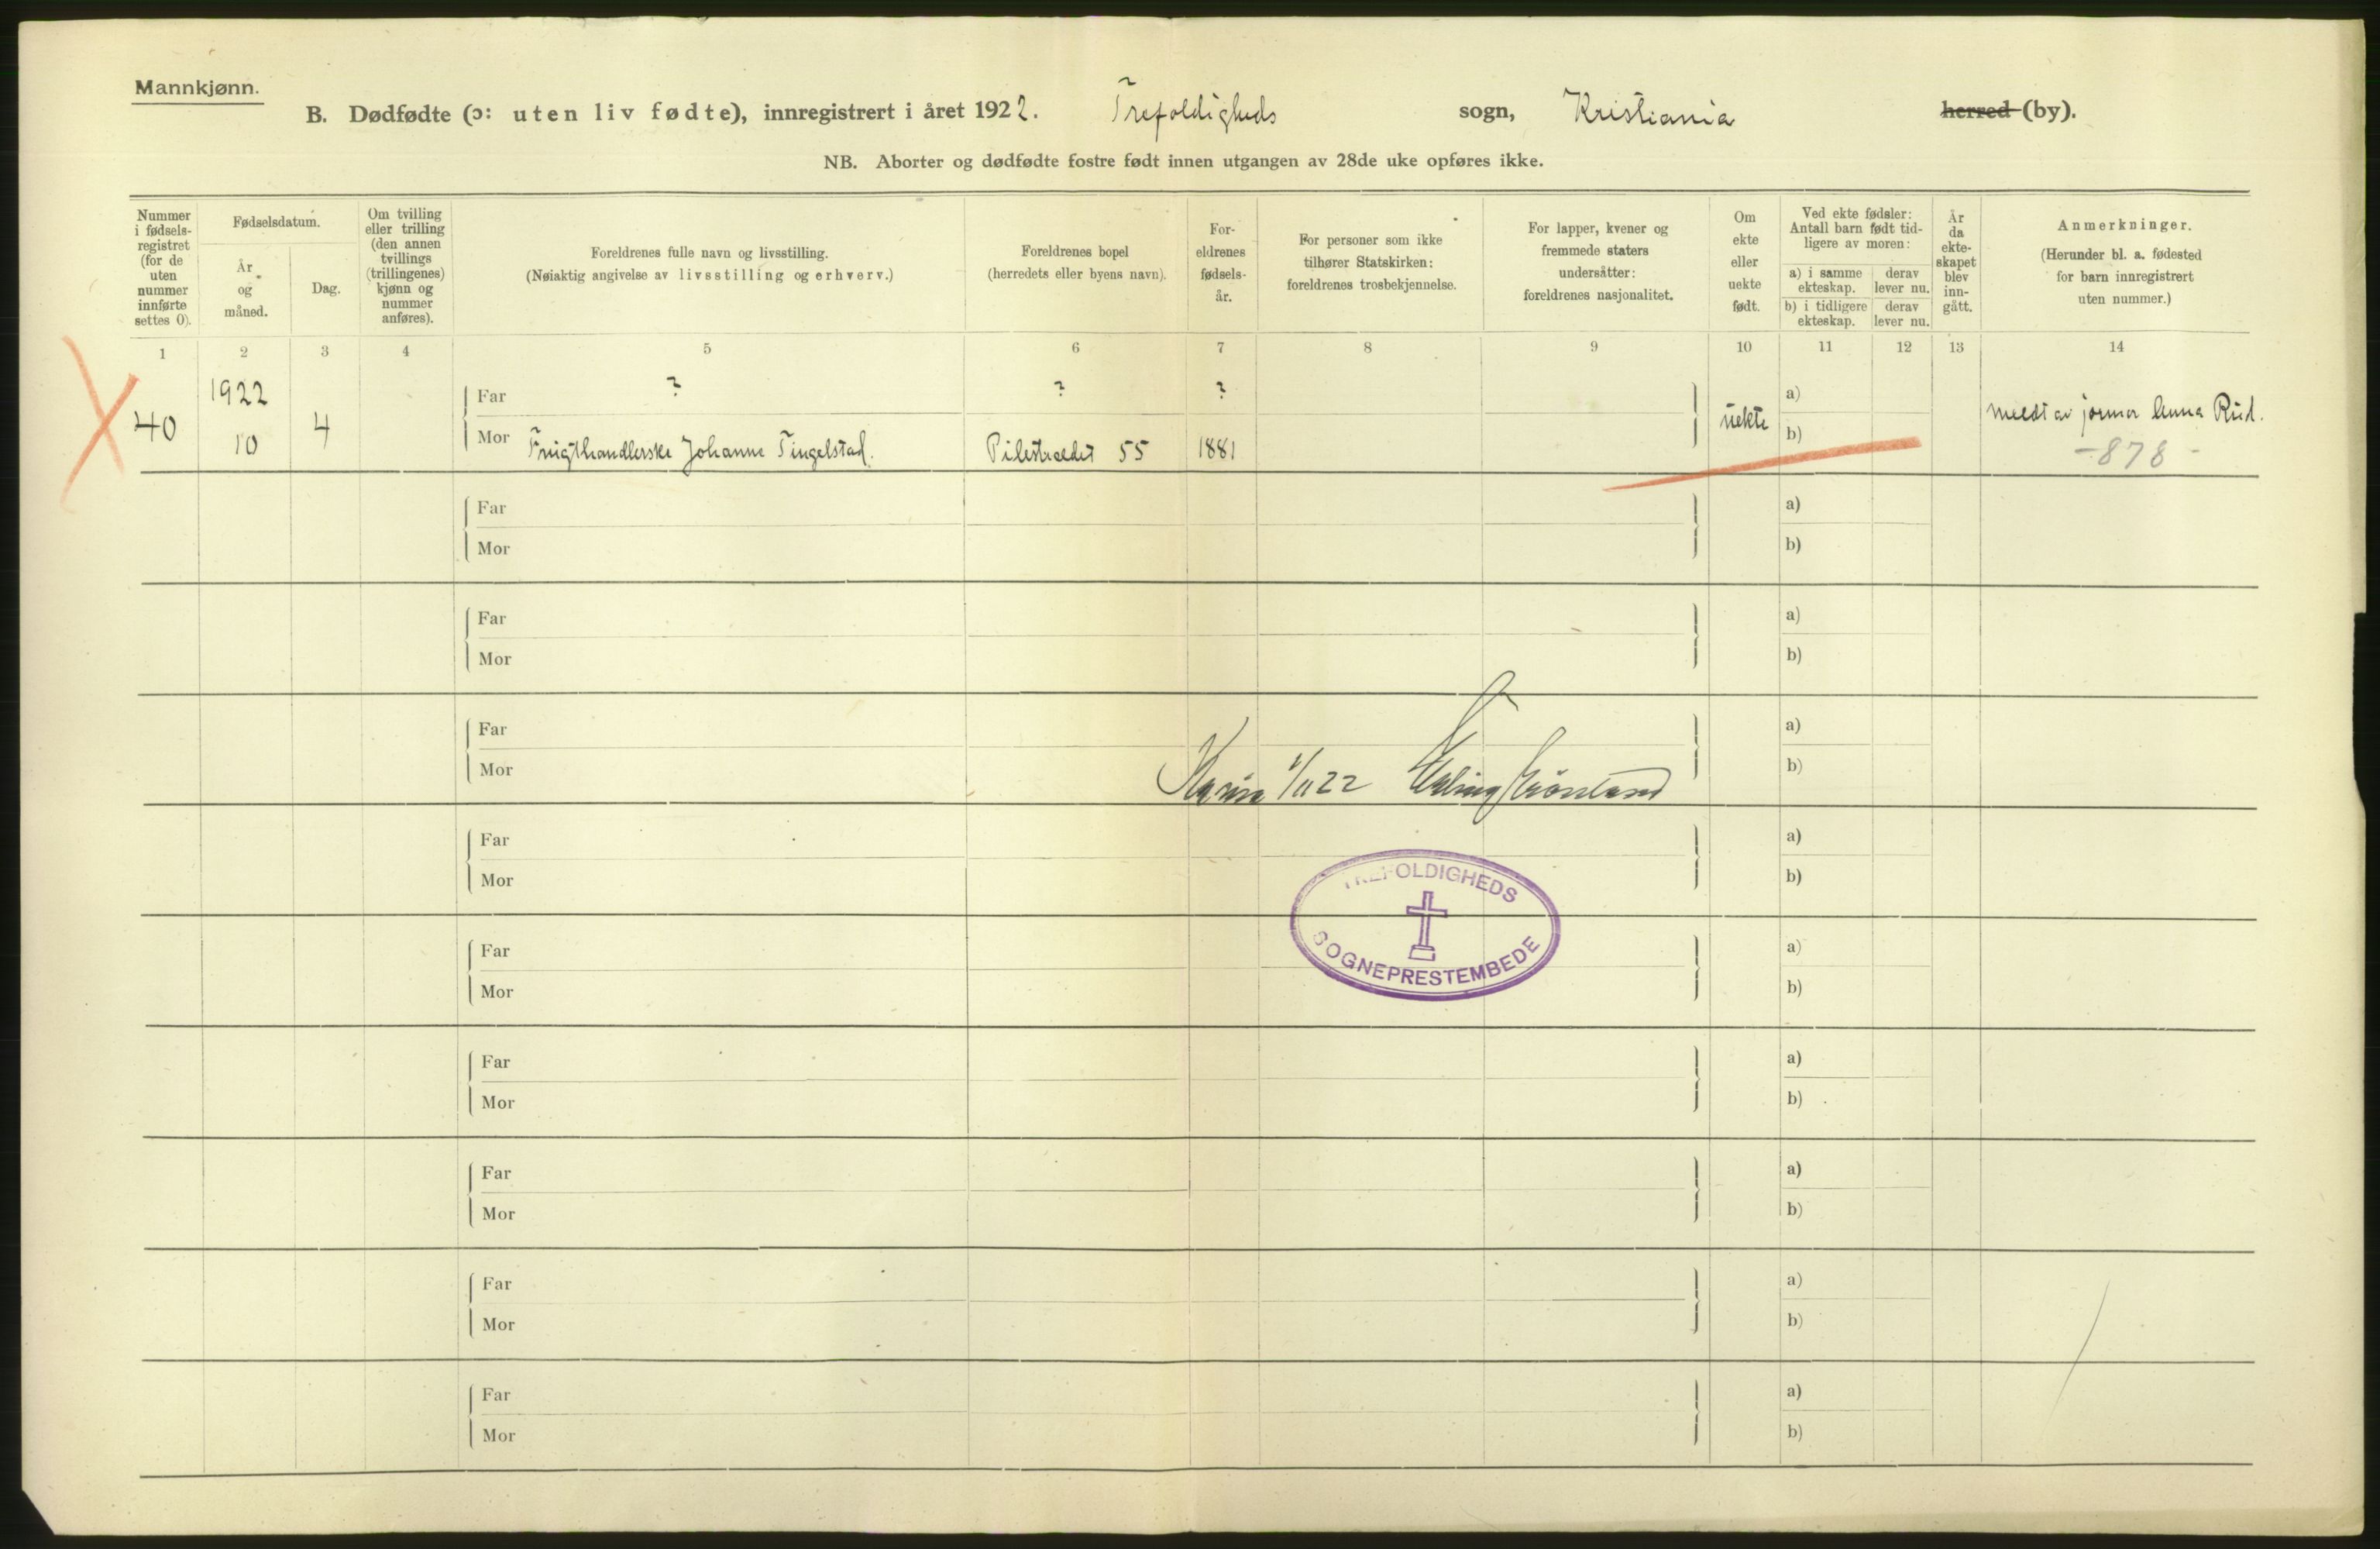 Mannkjønn.
B. Dødfødte (ɔ: uten liv fødte), innregistrert i året 1922. Trefoldigheds sogn, Kristiania herred (by).
NB. Aborter og dødfødte fostre født innen utgangen av 28de uke opføres ikke.
Nummer
i fødsels-
registret
(for de
uten
nummer
innførte
settes 0).
Fødselsdatum.
År
og
måned.
Dag.
Om tvilling
eller trilling
(den annen
tvillings
(trillingenes)
kjønn og
nummer
anføres).
Foreldrenes fulle navn og livsstilling.
(Nøiaktig angivelse av livsstilling og erhverv.)
Foreldrenes bopel
(herredets eller byens navn).
For-
eldrenes
fødsels-
år.
For personer som ikke
tilhører Statskirken:
foreldrenes trosbekjennelse.
For lapper, kvener og
fremmede staters
undersåtter:
foreldrenes nasjonalitet.
Om
ekte
eller
uekte
født.
Ved ekte fødsler:
Antall barn født tid-
ligere av moren:
a) i samme
ekteskap.
derav
lever nu.
b) i tidligere
ekteskap.
derav
lever nu.
År
da
ekte-
skapet
blev
inn-
gått.
Anmerkninger.
(Herunder bl. a. fødested
for barn innregistrert
uten nummer.)
1 2 3 4 5 6 7 8 9 10 11 12 13 14
1922
40 10 4
Far ? ? ?
Mor Frugthandlerske Johanne Tingelstad. Pilestrædet 55 1881
uekte
a)
b)
meldt av jormor Anna Rud.
-878-
Far a)
Mor b)
Far a)
Mor b)
Far a)
Mor b)
1/11 22 Erling Grönland
Far a)
Mor b)
TREFOLDIGHEDS
SOGNEPRESTEMBEDE
Far a)
Mor b)
Far a)
Mor b)
Far a)
Mor b)
Far a)
Mor b)
Far a)
Mor b)